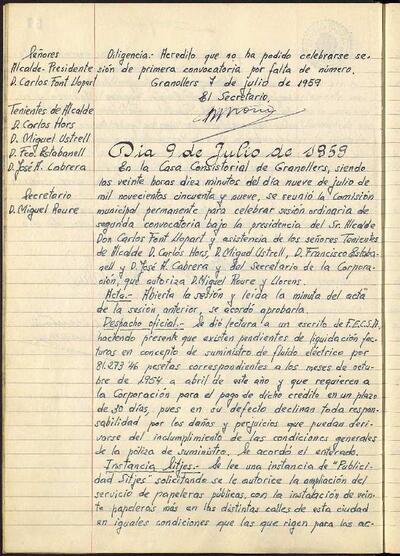 Señores
Alcalde-Presidente
D. Carlos Font Llopart
Tenientes de Alcalde
D. Carlos Hors
D. Miguel Ustrell
D. Fco. Estabanell
D. José A. Cabrera
Secretario
D. Miguel Roure
Diligencia.- Acredito que no ha podido celebrarse se-
sión de primera convocatoria por falta de número.
Granollers 7 de julio de 1959
El Secretario,
Dia 9 de Julio de 1959
En la Casa Consistorial de Granollers, siendo
las veinte horas diez minutos del día nueve de julio de
mil novecientos cincuenta y nueve, se reunió la Comisión
municipal permanente para celebrar sesión ordinaria de
segunda convocatoria bajo la presidencia del Sr. Alcalde
Don Carlos Font Llopart y asistencia de los señores Tenientes
de Alcalde D. Carlos Hors, D. Miguel Ustrell, D. Francisco Estaba-
nell y D. José A. Cabrera y del Secretario de la Corpora-
ción, que autoriza D. Miguel Roure y Llorens.
Acta.- Abierta la sesión y leída la minuta del acta
de la sesión anterior, se acordó aprobarla.
Despacho oficial.- Se dió lectura a un escrito de F.E.C.S.A.
haciendo presente que existen pendientes de liquidación fac-
turas en concepto de suministro de fluido eléctrico por
81.273'46 pesetas correspondientes a los meses de octu-
bre de 1954 a abril de este año y que requieren a
la Corporación para el pago de dicho crédito en un plazo
de 30 días, pues en su defecto declinan toda respon-
sabilidad por los daños y perjuicios que puedan deri-
varse del incumplimiento de las condiciones generales
de la póliza de suministro. Se acordó el enterado.
Instancia Sitjes.- Se lee una instancia de "Publici-
dad Sitjes" solicitando se le autorice la ampliación del
servicio de papeleras públicas, con la instalación de vein-
te papeleras más en las distintas calles de esta ciudad
en iguales condiciones que las que rigen para las ac-